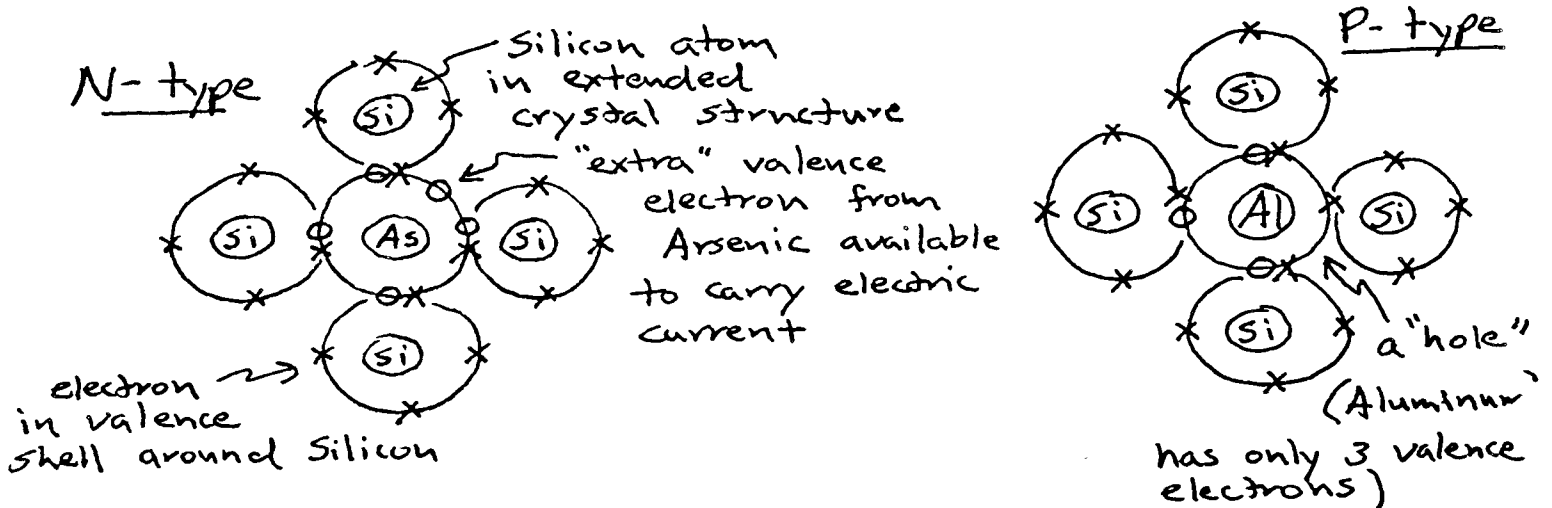 N-type
Silicon atom
in extended
crystal structure
"extra" valence
electron from
Arsenic available
to carry electric
current
Si
Si
As
Si
Si
electron
in valence
shell around Silicon
P-type
Si
Si
Al
Si
Si
a "hole"
(Aluminum
has only 3 valence
electrons)